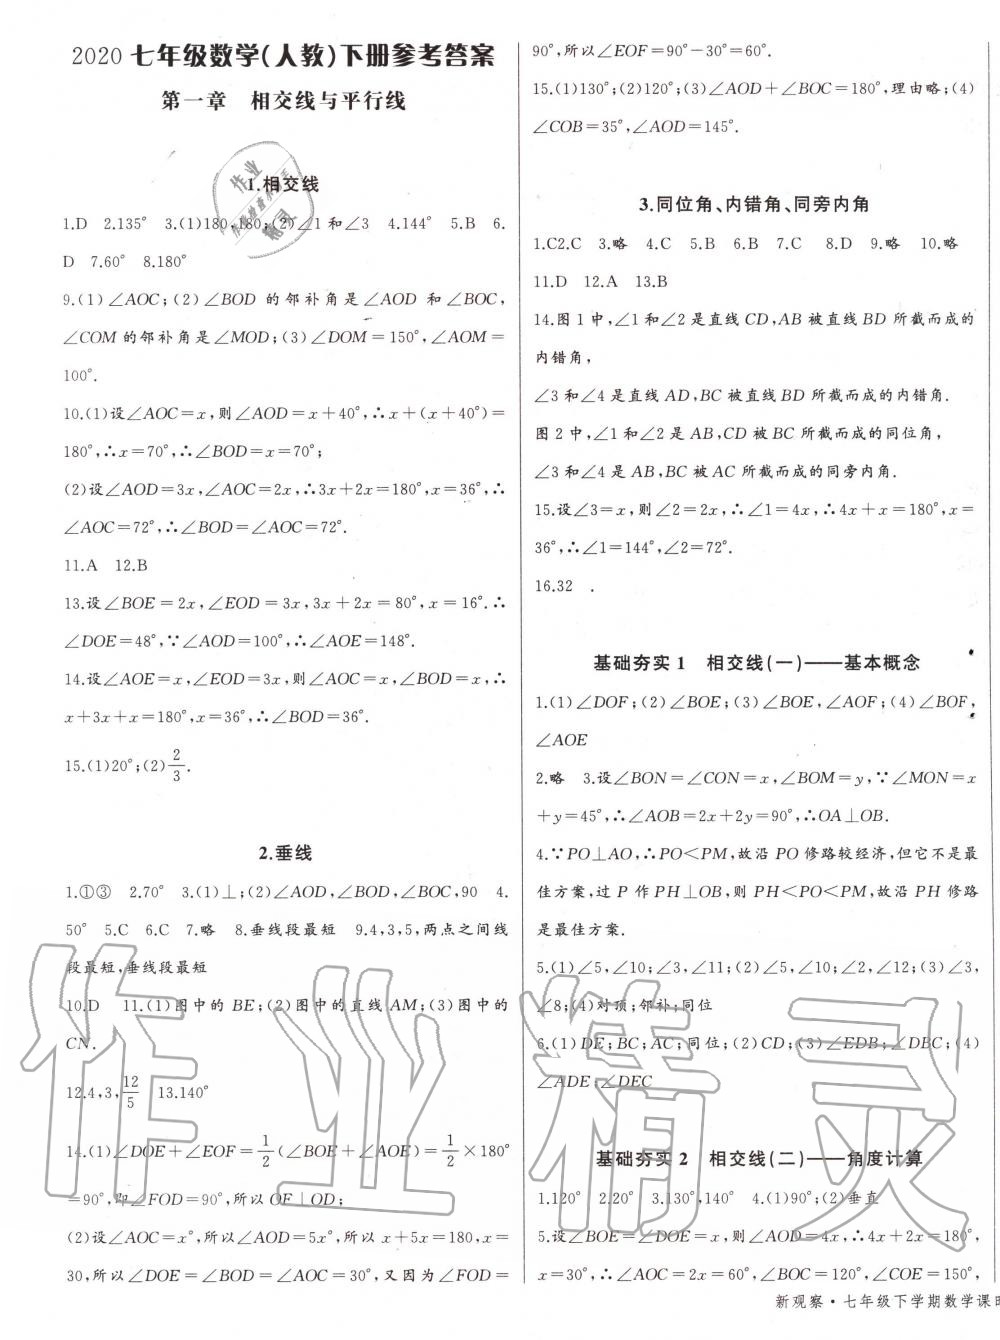 2020 七年级数学(人教)下册参考答案
第一章　相交线与平行线
1.相交线
1.D　2.135°　3.(1)180,180;(2)∠1和∠3　4.144°　5.B　6.
D　7.60°　8.180°
9.(1)∠AOC;(2)∠BOD 的邻补角是∠AOD 和∠BOC,
∠COM的邻补角是∠MOD;(3)∠DOM=150°,∠AOM=
100°.
10.(1)设∠AOC=x,则∠AOD=x+40°,∴x+(x+40°)=
180°,∴x=70°,∴∠BOD=70°;
(2)设∠AOD=3x,∠AOC=2x,∴3x+2x=180°,x=36°,∴
∠AOC=72°,∴∠BOD=∠AOC=72°.
11.A　12.B
13.设∠BOE=2x,∠EOD=3x,3x+2x=80°,x=16°.∴
∠DOE=48°,∵∠AOD=100°,∴∠AOE=148°.
14.设∠AOE=x,∠EOD=3x,则∠AOC=x,∠BOD=x,∴
x+3x+x=180°,x=36°,∴∠BOD=36°.
15.(1)20°;(2)2/3.
2.垂线
1.①③　2.70°　3.(1)⊥;(2)∠AOD,∠BOD,∠BOC,90　4.
50°　5.C　6.C　7.略　8.垂线段最短　9.4,3,5,两点之间线
段最短,垂线段最短
10.D　11.(1)图中的BE;(2)图中的直线AM;(3)图中的
CN.
12.4,3,12/5　13.140°
14.(1)∠DOE+∠EOF=1/2(∠BOE+∠AOE)=1/2×180°
=90°,即∠FOD=90°,所以OF⊥OD;
(2)设∠AOC=x°,所以∠AOD=5x°,所以x+5x=180,x=
30,所以∠DOE=∠BOD=∠AOC=30°,又因为∠FOD=
90°,所以∠EOF=90°-30°=60°.
15.(1)130°;(2)120°;(3)∠AOD+∠BOC=180°,理由略;(4)
∠COB=35°,∠AOD=145°.
3.同位角、内错角、同旁内角
1.C2.C　3.略　4.C　5.B　6.B　7.C　8.D　9.略　10.略
11.D　12.A　13.B
14.图1中,∠1和∠2是直线CD,AB被直线BD所截而成的
内错角,
∠3和∠4是直线AD,BC被直线BD所截而成的内错角.
图2中,∠1和∠2是AB,CD被BC所截而成的同位角,
∠3和∠4是AB,BC被AC所截而成的同旁内角.
15.设∠3=x,则∠2=2x,∴∠1=4x,∴4x+x=180°,x=
36°,∴∠1=144°,∠2=72°.
16.32　.
基础夯实1　相交线(一)——基本概念
1.(1)∠DOF;(2)∠BOE;(3)∠BOE,∠AOF;(4)∠BOF,
∠AOE
2.略　3.设∠BON=∠CON=x,∠BOM=y,∵∠MON=x
+y=45°,∴∠AOB=2x+2y=90°,∴OA⊥OB.
4.∵PO⊥AO,∴PO<PM,故沿PO修路较经济,但它不是最
佳方案,过P作PH⊥OB,则PH<PO<PM,故沿PH修路
是最佳方案.
5.(1)∠5,∠10;∠3,∠11;(2)∠5,∠10;∠2,∠12;(3)∠3,
∠8;(4)对顶;邻补;同位
6.(1)DE;BC;AC;同位;(2)CD;(3)∠EDB;∠DBC;(4)
∠ADE;∠DEC
基础夯实2　相交线(二)——角度计算
1.120°　2.20°　3.130°,140°　4.(1)90°;(2)垂直
5.设∠BOE=∠DOE=x,则∠AOD=4x,∴4x+2x=180°,
x=30°,∴∠AOC=2x=60°,∠BOC=120°,∠COE=150°,
新观察·七年级下学期数学课时
作业精灵